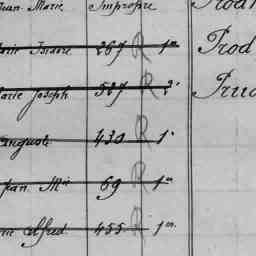 Jean. Marie Impropre
Marie Isidore 267 R 1ᵐ Prod
Marie Joseph 587 R 2ᵉ Prud
Auguste 430 R 1ᵉ
Jean. Mie 69 R 1ᵐ
Alfred 455 R 1ᵐ.